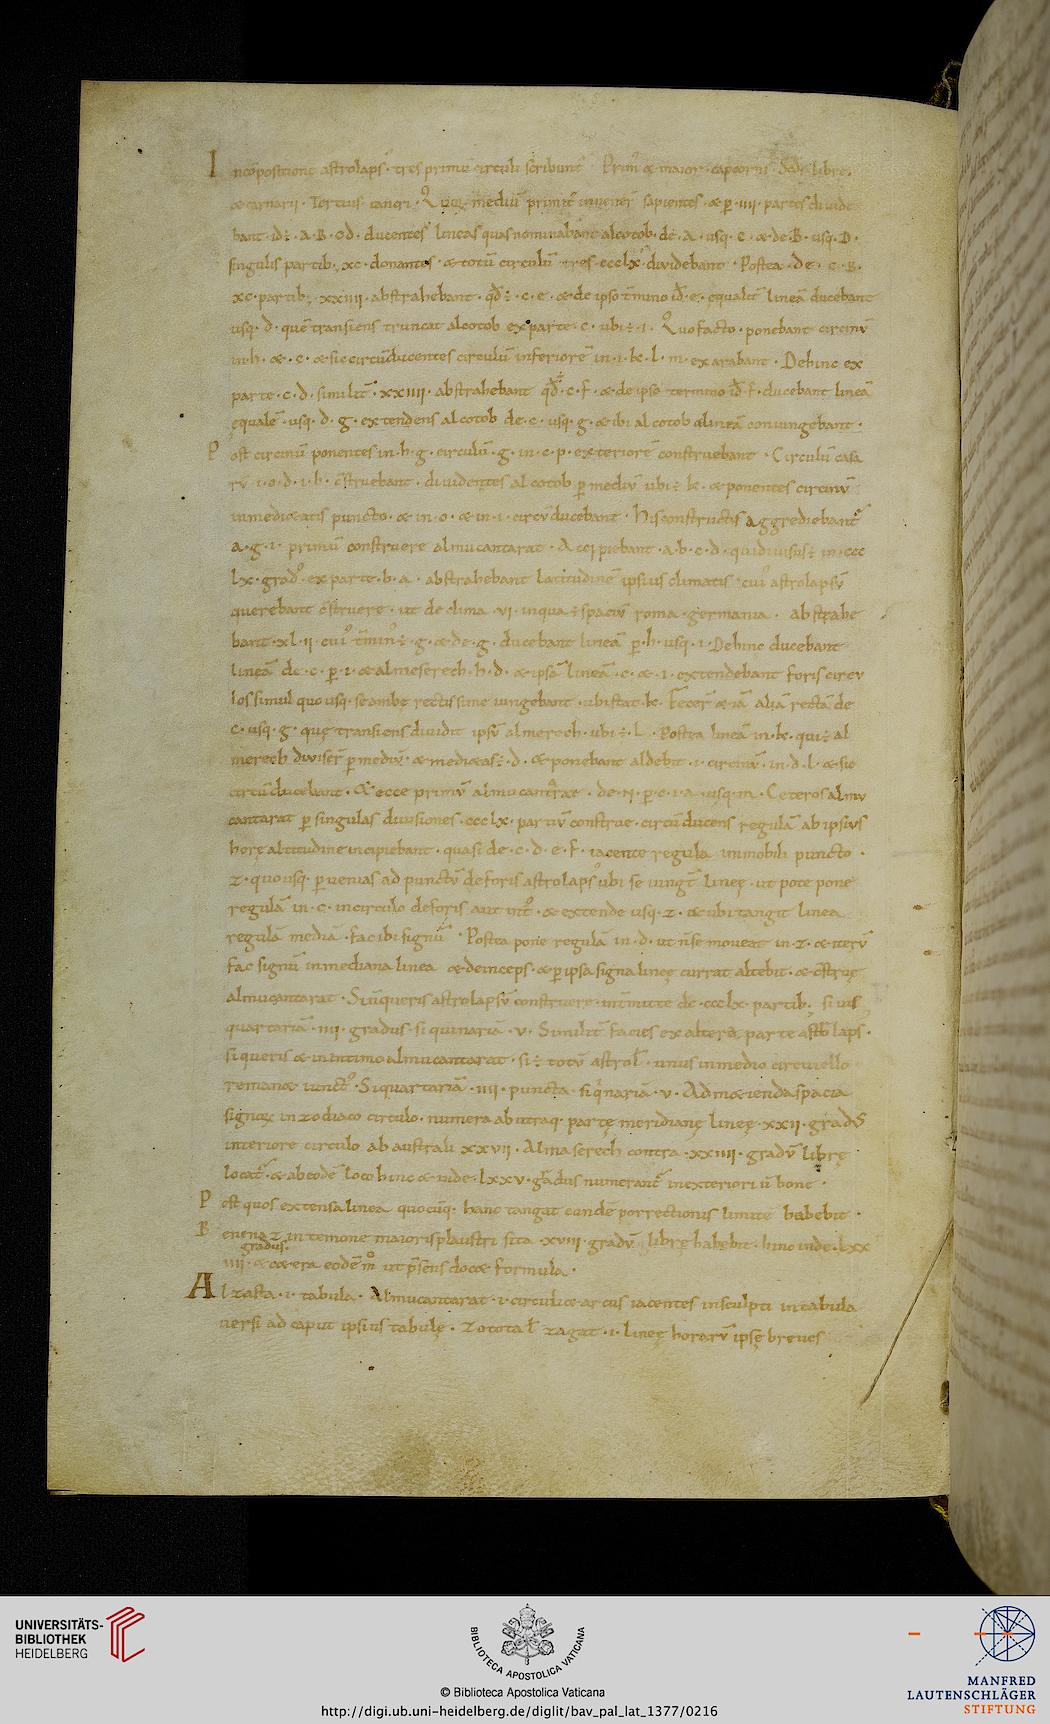 In compositione astrolapsꝰ · tres primũ circuli scribunt̃ Primꝰ & maior · capcorni · Scds̃ libre ·
& arnarii · Tercius cancri · Quoꝝ mediũ primit᷒ inuener̃ sapientes · & p̱ · iiii · partes diuide
bant · id÷ · A · B · C D · ducentes lineas quas nominabant alcotob · de · A · usq · C · & de · B · usq · D ·
singulis partib; xc · donantes · & totũ circulũ tres · ccclx · diuidebant · Postea · de · C · B ·
xc · partib; · xxiiii · abstrahebant · qđ÷ · c · e · & de ipso t̃mino id̃ · e · equalit̃ lineã ducebant
usq · d · quẽ transiens truncat alcotob ex parte · c · ubi ÷ · i · Quo facto · ponebant circinũ
in · h · & · c · & sic circũducentes circulũ inferiorẽ in · i · k · l · m · exarabant · Dehinc ex
parte · c · d · similit̃ · xxiiii · abstrahebant qđ÷ · c · f · & de ipso termino id̃ · f · ducebant lineã
ęqualẽ · usq · d · g · extendens alcotob de · c · usq · g · & ibi alcotob & lineã coniungebant ·
Post circinũ ponentes in · h · g · circulũ · g · in · c · p · exteriorẽ construebant · Circulũ casa
rũ · i · o · d · i · h · c̃struebant · diuidentes alcotob p̱ mediũ ubi ÷ k · & ponentes circinũ
in medi&atis puncto · & in · o · & in · i · circũducebant · His constructis aggrediebant̃
a · g · i · primũ construere almucantarat · Accipiebant · a · b · c · d · qui diuisus ÷ in · ccc
lx · gradꝰ · ex parte · b · a · abstrahebant latitudinẽ ipsius climatis · cuiꝰ astrolapsũ
querebant c̃struere · ut de clima · vi · in qua ÷ spaciũ roma · germania · abstrahe
bant · xl · ii · cuiꝰ t̃minꝰ ÷ · g · & de · g · ducebant lineã p̱ · h · usq · i · Dehinc ducebant
lineã de · c · p̱ · i · & almeserech · h · d · & ipsã lineã · c · & · i · extendebant foris circu
los simul quo usq · se ambę rectissime iungebant · ubi stat · k · Fecer̃ & iã aliã rectã de
c · usq · g · quę transiens diuidit ipsũ almerech · ubi ÷ · l · Postea lineã in · k · qui ÷ al
merech diuiser̃ p̱ mediũ · & medi&as ÷ · d · & ponebant aldebit · i · circinũ · in · d · l · & sic
circũducebant · & ecce primũ almucantrat · de · n · p̱ · c · i · a · usq · m · Ceteros almu
cantarat p̱ singulas diuisiones · ccclx · partiũ construe · circũducens regulã ab ipsius
horę altitudine incipiebant · quasi de · c · d · e · f · iacente regula immobili puncto ·
z · quousq · p̱uenias ad punctũ de foris astrolapsꝰ ubi se iungt̃ lineę · ut pote pone
regulã in · c · in circulo de foris aut intꝰ · & extende usq · z · & ubi tangit linea
regulã mediã · fac ibi signũ · Postea pone regulã in · d · ut ñ se moueat in · z · & iterũ
fac signũ in mediana linea & deinceps · & p̱ ipsa signa lineę currat altebit · & c̃struę
almucantarat · Si ũ queris astrolapsũ construere · int̃mitte de · ccclx · partib; si uis
quartariã · iiii · gradus · si quinariã · v · Similit̃ facies ex altera parte astlaps ·
si queris & in intimo almucantarat · si ÷ totũ astrol̃ · unus in medio circuiello
reman& iunctꝰ · Si quartariã · iiii · puncta · si qinariã · v · Ad m&ienda spacia
signoꝝ in zodiaco circulo · numera ab utraq · partę meridianę lineę · xxii · gradꝰ
interiore circulo ab australi xxvii · Almaserech contra · xxiiii · gradũ librę
locat̃ · & ab eodẽ loco hinc & inde · lxxv · gradus numerant̃ in exteriori ũ bone ·
Post quos extensa linea quocũq · hanc tangat eundẽ porrectionis limitẽ habebit ·
Benenaz in temone maioris plaustri sita · xviii · gradũ librę habebit · hinc inde · lxx
gradus ·
iiii · & c&era eodẽ m̊ ut p̃sens doc& formula ·
Alzafta · i · tabula · Almucantarat · i · circuli & arcus iacentes insculpti in tabula
uersi ad caput ipsius tabulę · Zototal̃ zagat · i · lineę horarũ ipsę breues
UNIVERSITÄTS-
BIBLIOTHEK
HEIDELBERG
BIBLIOTECA APOSTOLICA VATICANA
© Biblioteca Apostolica Vaticana
http://digi.ub.uni-heidelberg.de/diglit/bav_pal_lat_1377/0216
MANFRED
LAUTENSCHLÄGER
STIFTUNG